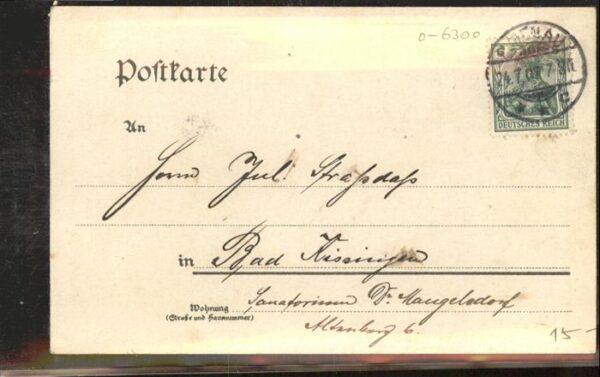 0-6300
ILMENAU
24.7.0 7-8N.
* * C
DEUTSCHES REICH
Postkarte
An
Herrn Jul. Straßdaß
in Bad Kissingen
Wohnung
(Straße und Hausnummer)
Sanatorium Dr. Mangelsdorf
Altenberg 6.
15-